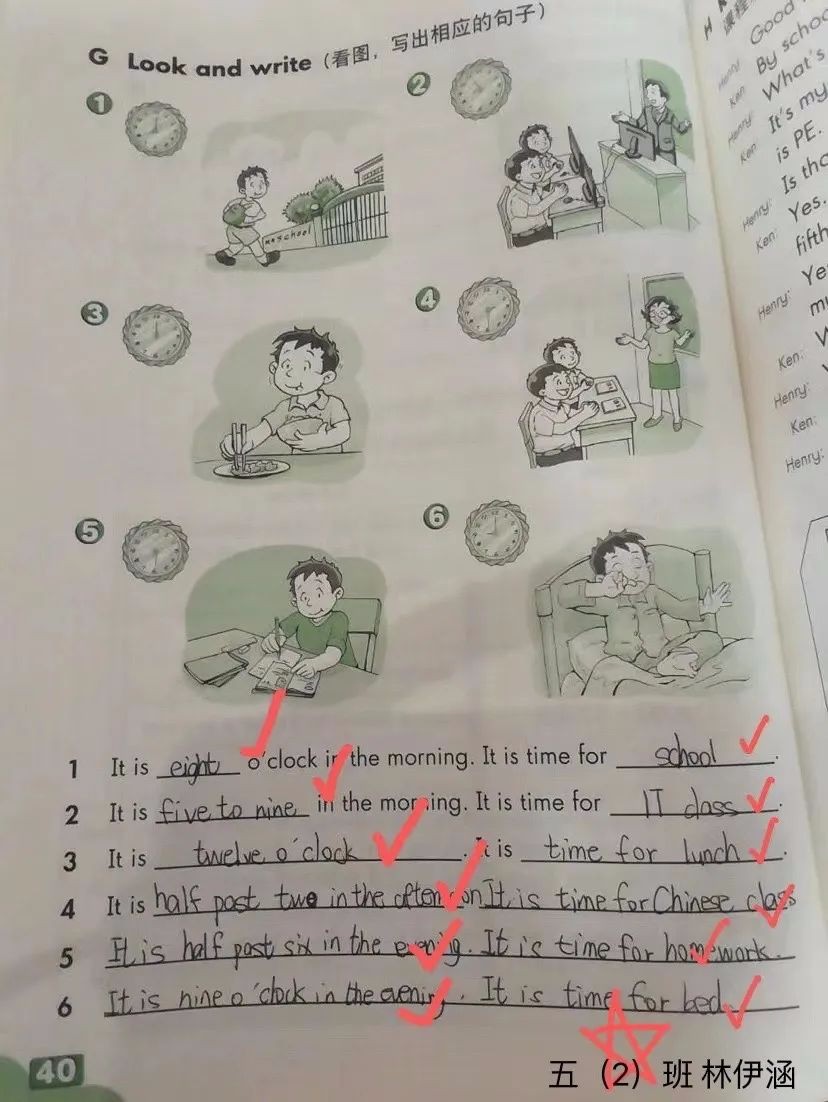 G Look and write (看图，写出相应的句子)
1
2
3
4
5
6
school
1 It is eight o'clock in the morning. It is time for school.
2 It is five to nine in the morning. It is time for IT class.
3 It is twelve o'clock. It is time for lunch.
4 It is half past two in the afternoon It is time for Chinese class
5 It is half past six in the evening. It is time for homework.
6 It is nine o'clock in the evening. It is time for bed
40
五（2）班 林伊涵
H
课程
Henry: Good
Ken: By schoo
Henry: What's
Ken: It's my
is PE.
Henry: Is tha
Ken: Yes.
fifth
Henry: Ye
m
Ken:
Henry:
Ken:
Henry: